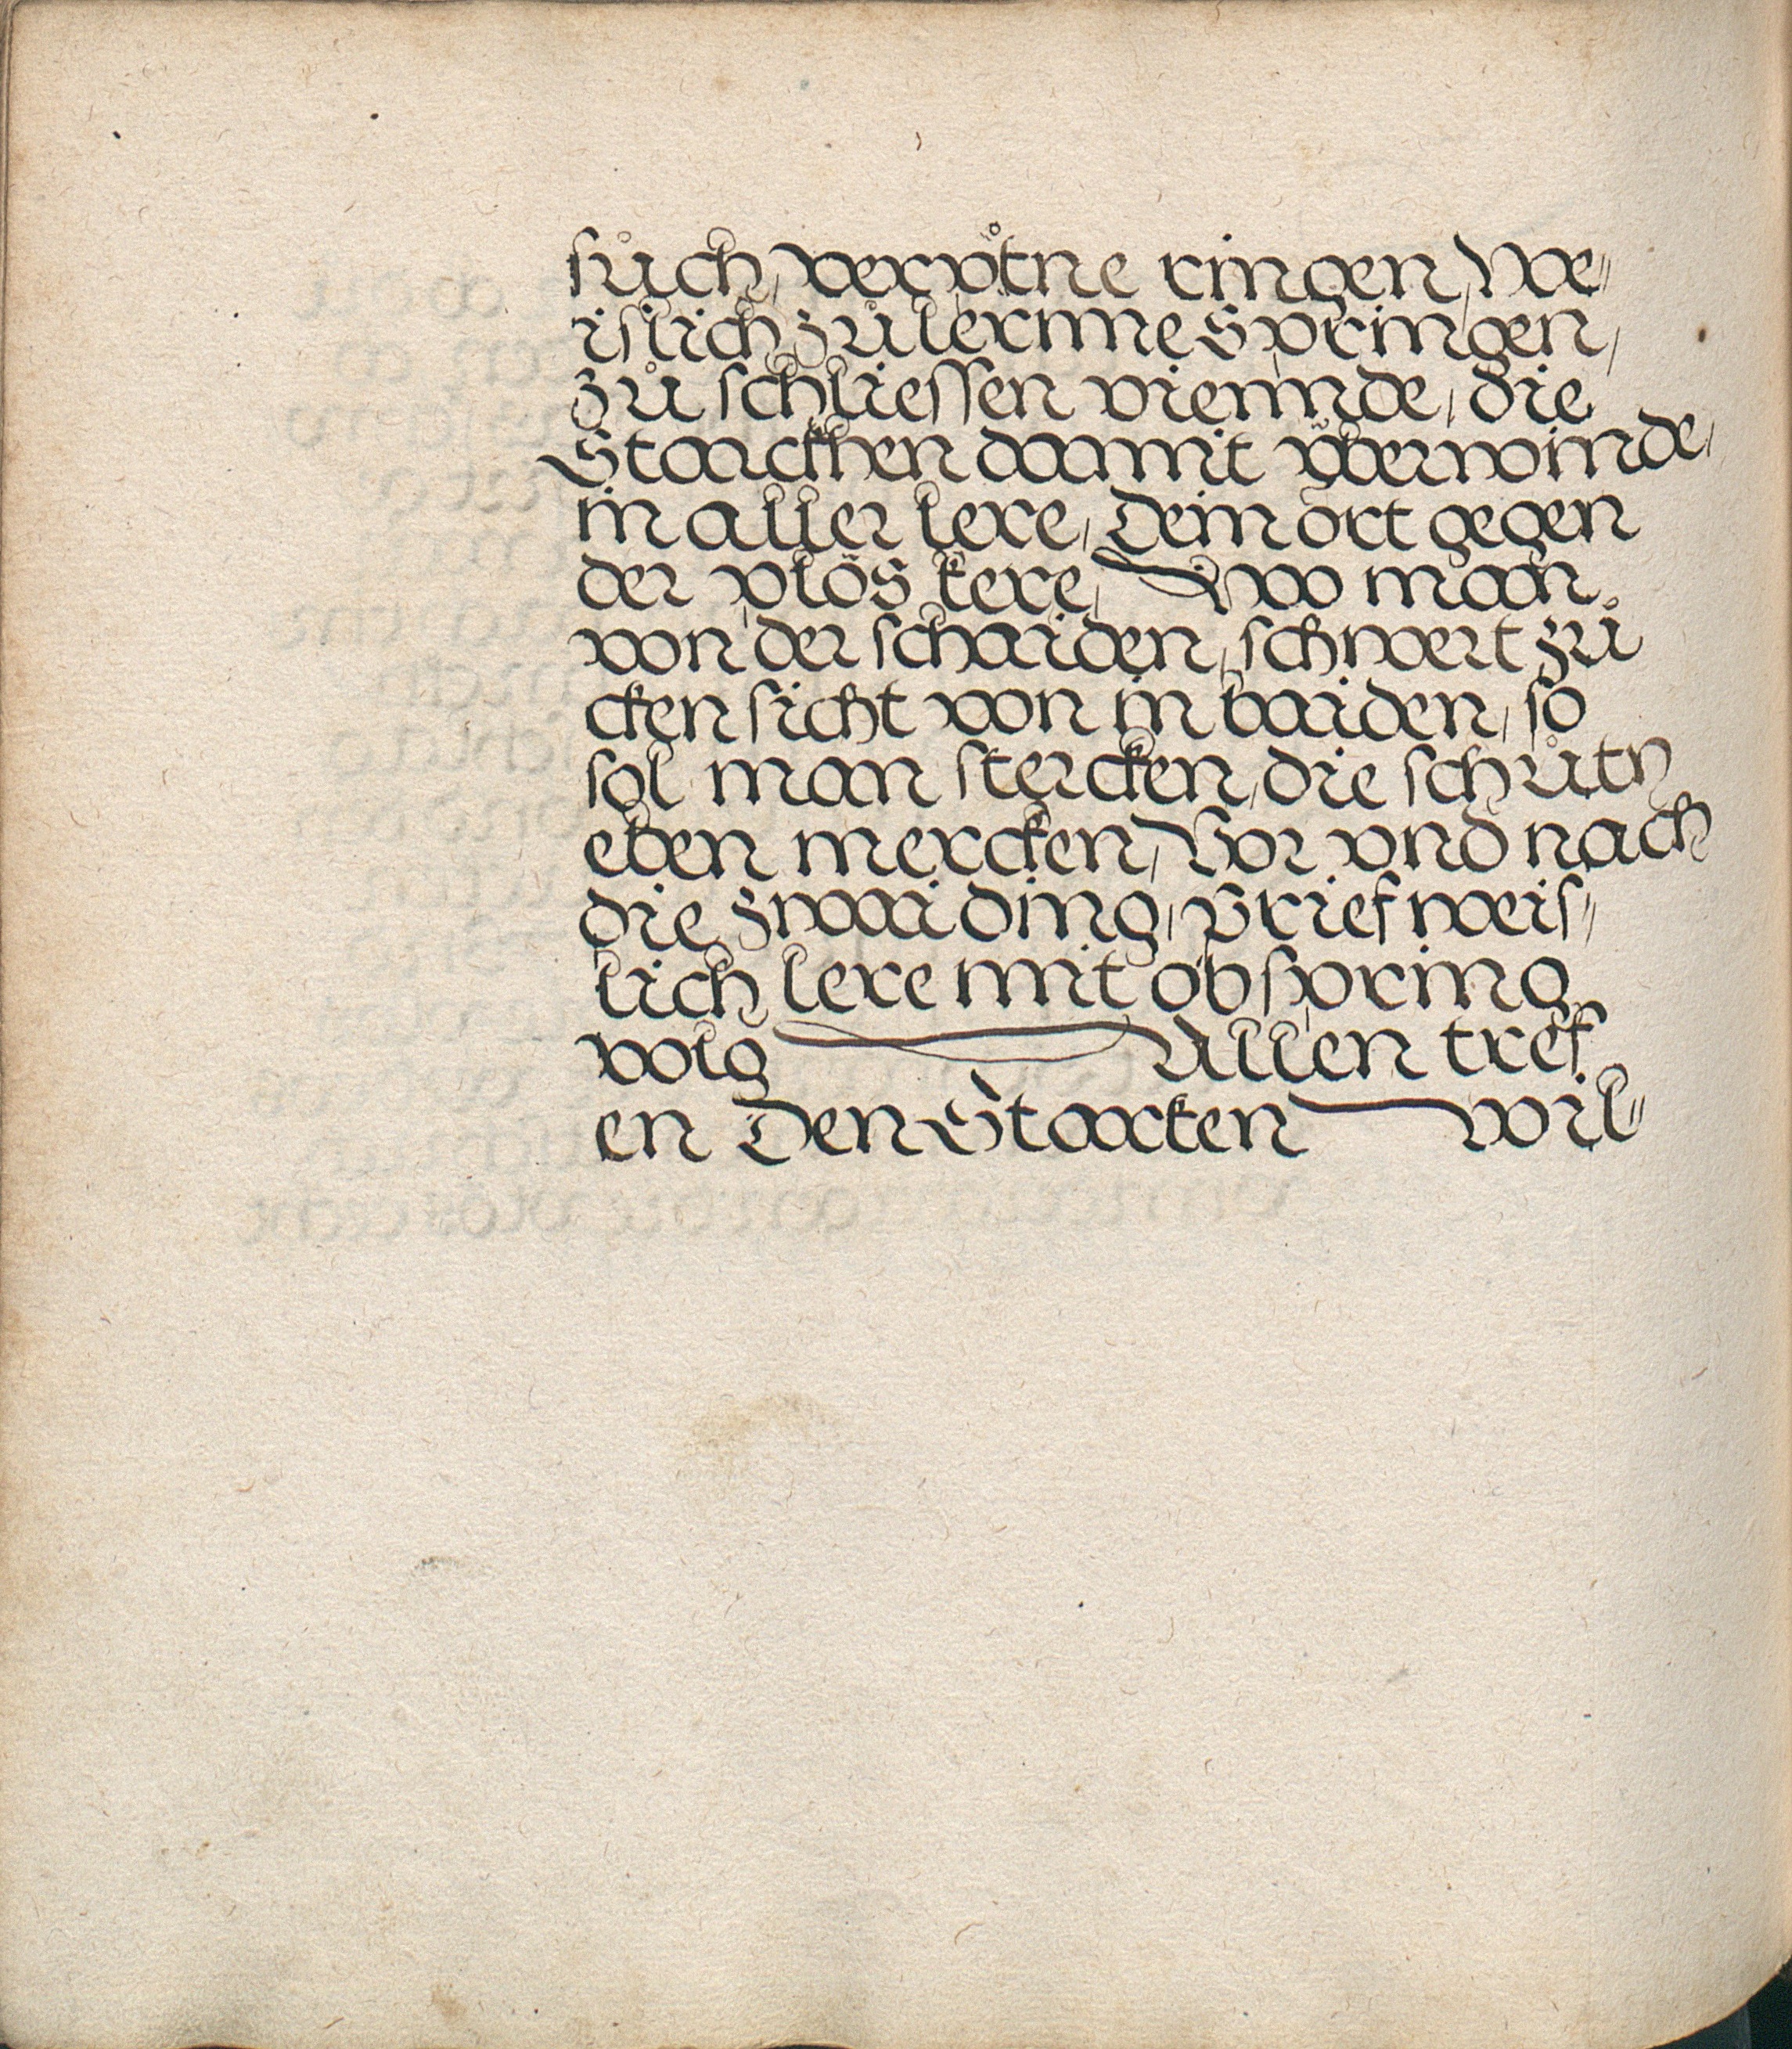 sůch, verpo̊tne ringen, We„
islich zů lernne Springen,
zů schliessen viennde, die
Starckhen damit vberwinde,
in aller lere, Dein ort gegen
der plös kere, Two man
von der schaiden, schwert zů
cken sicht von in baiden, so
sol man stercken, die schrůtn
eben mercken, Vor vnd nach
die zwai ding, Brief weis„
lich lere mit ob spring
volg Allen tref
en Den Starcken wil„